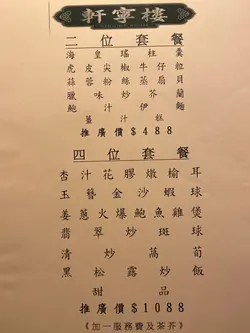 軒寧樓
二位套餐
海皇瑤柱羹
虎皮尖椒牛仔粒
蒜蓉粉絲蒸扇貝
臘味炒芥蘭
鮑汁伊麵
薑汁糕
推廣價$488
四位套餐
杏汁花膠燉榆耳
玉簪金沙蝦球
姜蔥火爆鮑魚雞煲
翡翠炒斑球
清炒萵荀
黑松露炒飯
甜品
推廣價$1088
《加一服務費及茶芥》